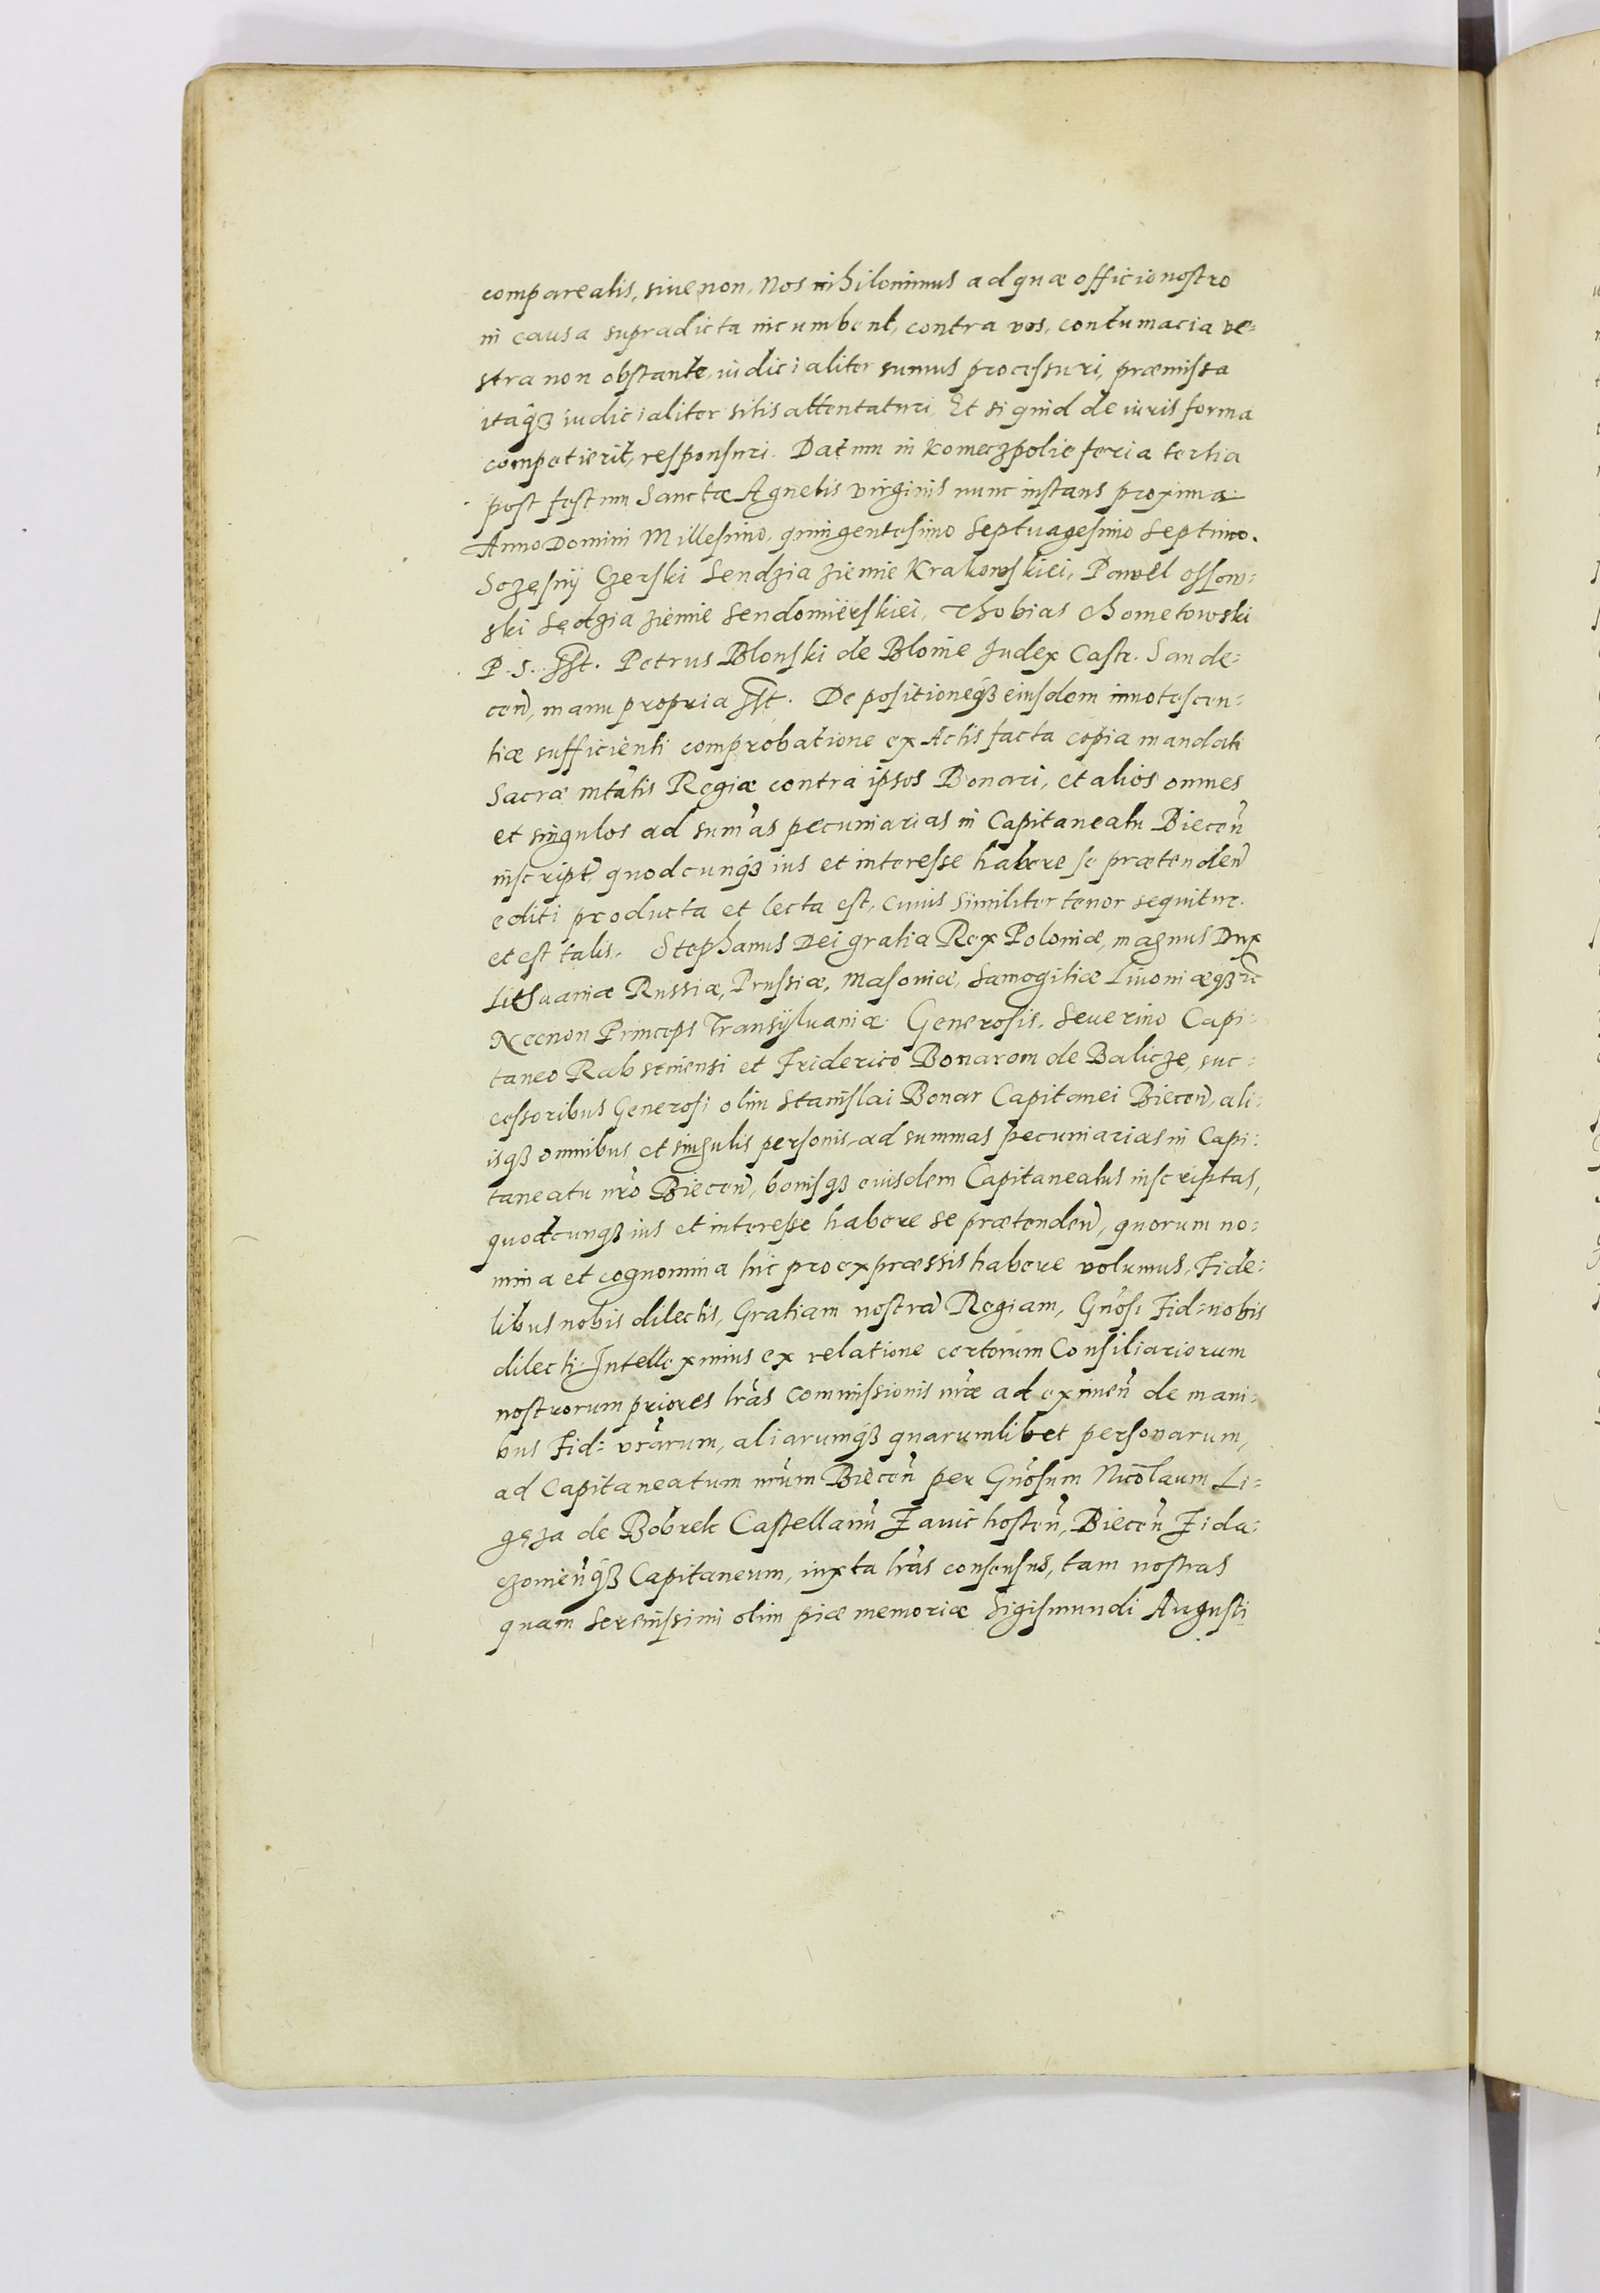 comparealis, siue non, Nos nihilominus ad quæ officio nostro
in causa supradicta incumbent, contra vos, contumacia ve=
stra non obstante, iudicialiter sumus processuri, præmissa
itaqȝ iudicialiter sitis attentaturi, Et si quid de iuris forma
competierit, responsuri. Datum in Komeczpolie feria tertia
post festum Sanctæ Agnetis virginis nunc instans proxima
Anno Domini Millesimo, quingentesimo Septuagesimo Septimo.
Sczęsnÿ Czerski Sendzia ziemie Krakowskiei, Pawel ossow=
ski Sędzia ziemie Sendomierskiei, Thobias Chometowski
P. S. sst. Petrus Blonski de Blonie Judex Castr. Sande=
ceñ, manu propria sst. Depositioneqȝ eiusdem innotescen=
tiæ sufficienti comprobatione ex Actis facta copia mandati
Sacræ mtatis Regiæ contra ipsos Bonari, et alios omnes
et singulos ad sum̃as pecuniarias in Capitaneatu Bieceñ
inscript, quodcunqȝ ius et interesse habere se prætendeñ
editi producta et lecta est, cuius similiter tenor sequitur.
et est talis. Stephanus Dei gratia Rex Poloniæ, magnus Dux
Lithuaniæ Russiæ, Prussiæ, Masouiæ, Samogitiæ Liuoniæqȝ ꝛc
Necnon Princeps Transÿluaniæ. Generosis, Seuerino Capi=
taneo Rabstinensi et Friderico Bonarom de Balicze, suc=
cessoribus Generosi olim Stanislai Bonar Capitanei Bieceñ, ali=
isqȝ omnibus et singulis personis, ad summas pecuniarias in Capi=
taneatu nr̃o Bieceñ, bonisqȝ eiusdem Capitaneatus inscriptas,
quodcunqȝ ius et interesse habere se prætendeñ, quorum no=
mina et cognomina hic pro expræssis habere volumus, Fide=
libus nobis dilectis, Gratiam nostrã Regiam, Gñosi Fid= nobis
dilecti. Intelleximus ex relatione certorum Consiliariorum
nostrorum priores lr̃as commissionis nr̃æ ad eximeñ de mani=
bus Fid= vr̃arum, aliarumqȝ quarumlibet personarum,
ad Capitaneatum nr̃um Bieceñ per Gñosum Nicolaum Li=
gęza de Bobrek Castellanũ Zauichosteñ, Bieceñ Zida=
czomieñqȝ Capitaneum, iuxta lr̃as consensus, tam nostras
quam Serenissimi olim piæ memoriæ Sigismundi Augusti